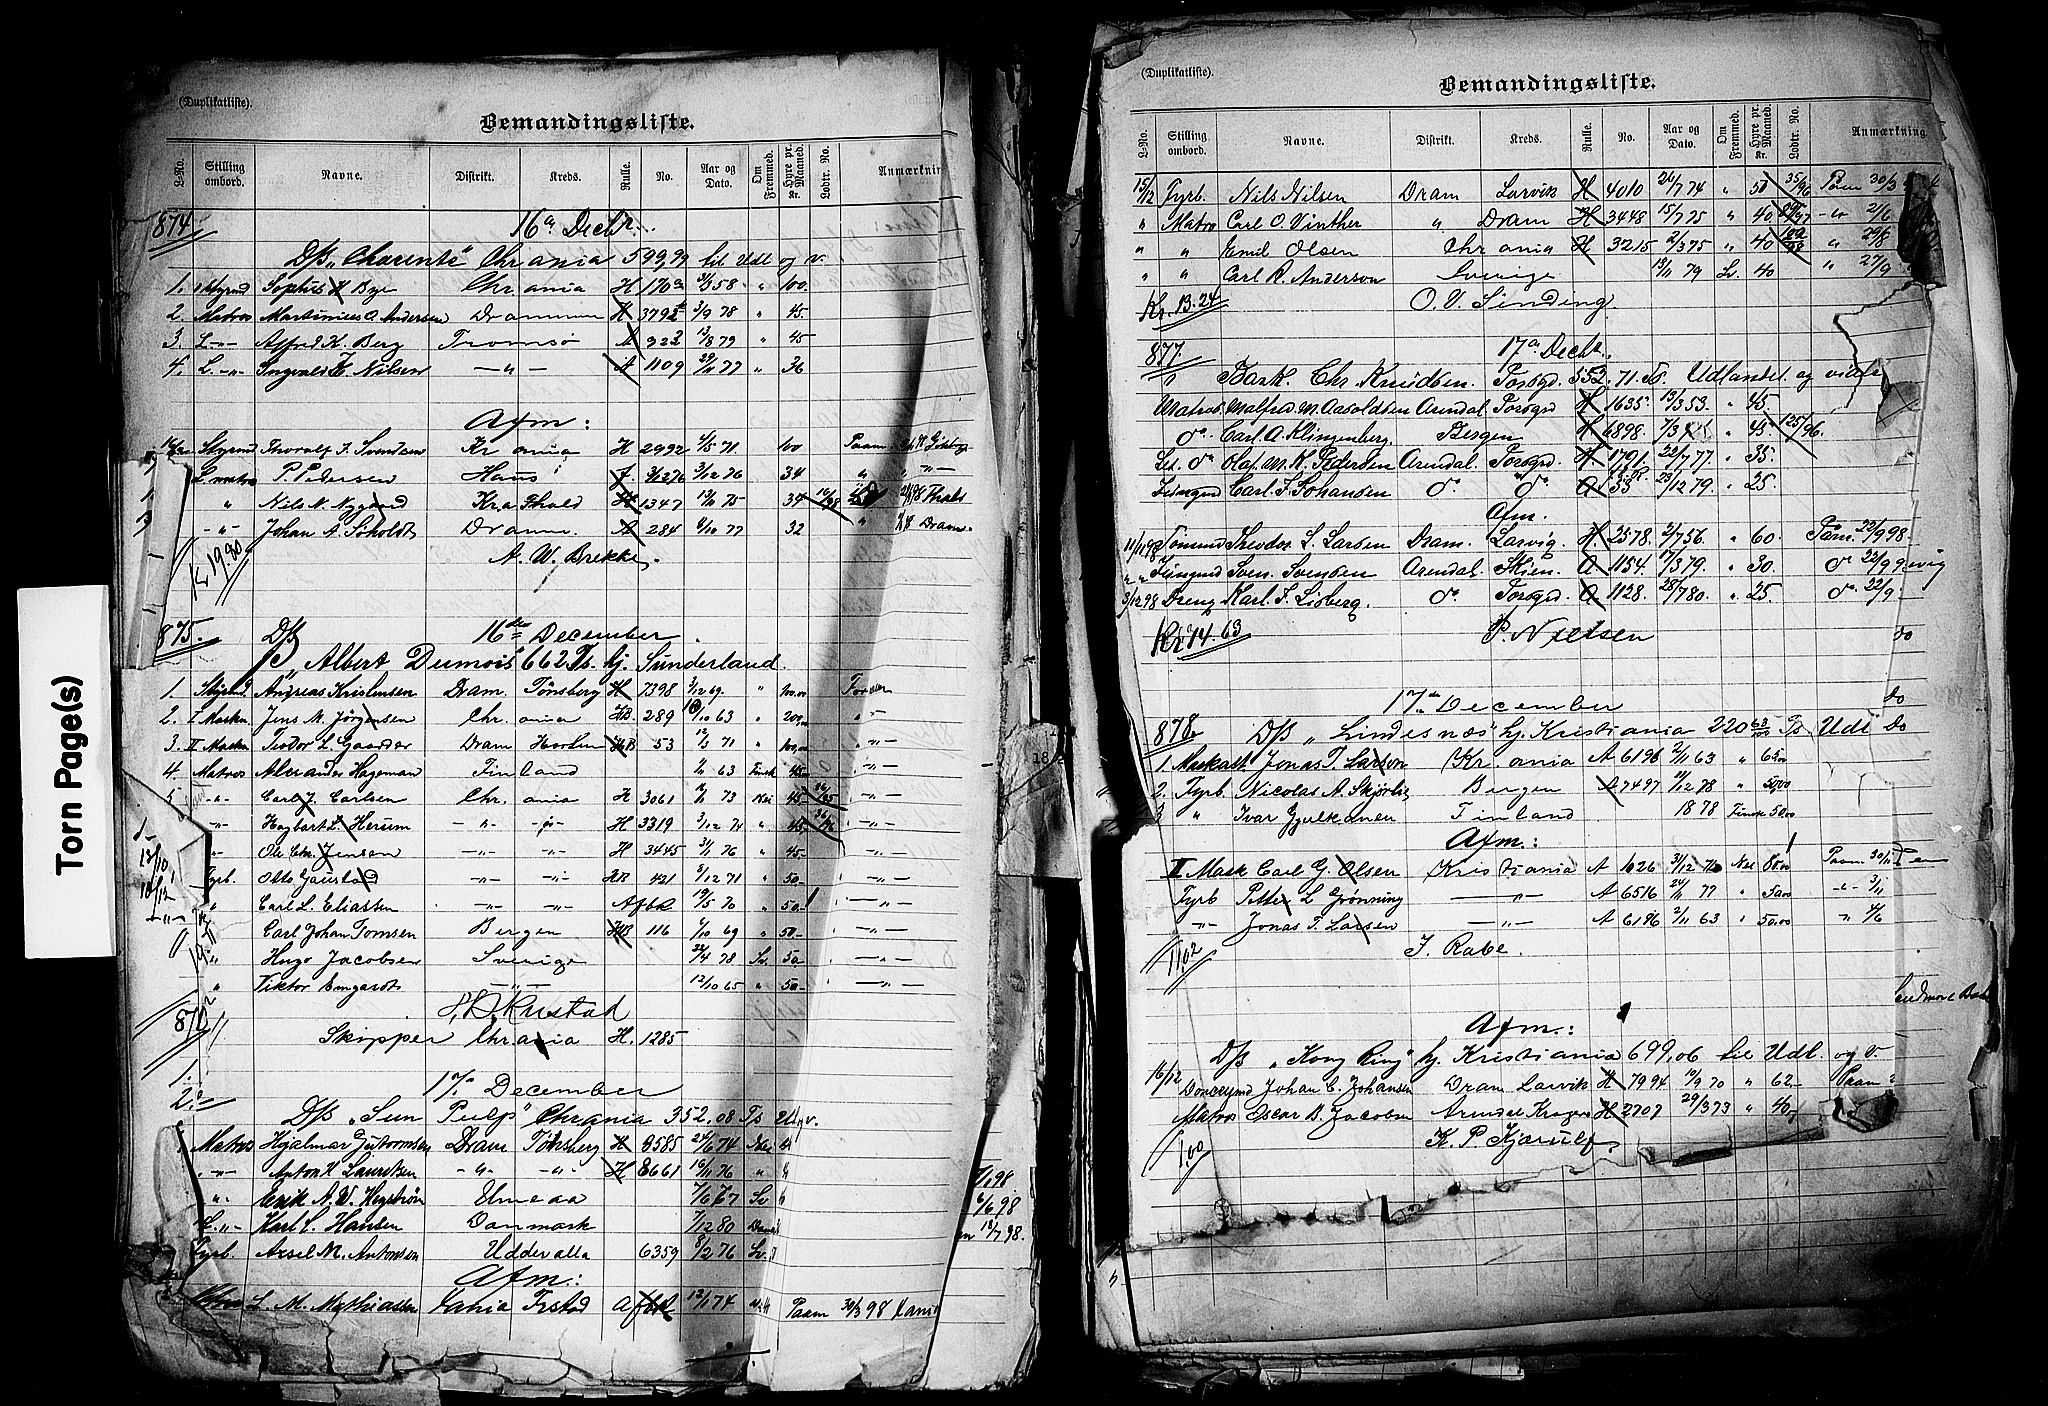 Torn Page(s)
(Duplikatliste).
Bemandingsliste.
L-No. Stilling ombord. Navne. Distrikt. Kreds. Rulle. No. Aar og Dato. Om Fremmed. Hyre pr. Maaned. Kr. Lodtr. No. Anmærknin
874 16de Decbr.
D/S „Charente" Chr.ania 599,99 til Udl og v.
1. Styrmd Sophus H Bye Chr.ania H 31/3 58 " 100.
2. Matros Martinius A. Andersen Drammen H 3/9 78 " 45.
3. L-"- Alfred K. Berg Tromsø A 922 13/8 79 " 45
4. L.-"- Ingvald E. Nilsen -"- A 1109 29/11 77 " 36
Afm:
Styrmd Thoralf F. Svendsen Kr ania H 2992 2/5 71 100 Paam.
L. matros P. Pedersen Haus 3/12 76 34 " -"-
" Nils N. Nygaard Kr.a Fhald H 1347 34
-"- Johan A. Soholdt Dramm. A 284 6/10 77 32 " Dram.
A. W. Brekke.
Kr 19.80
875. D/S 16de December
„Albert Dumois" 662 Ts. hj. Sunderland.
1. Styrmd Andreas Kristensen Dram. Tønsberg H 7398 3/12 69. " 100.00
2. I Maskn. Jens M. Jørgensen Chr. ania HB. 289 10/10 63 " 200,00 -"-
3. II Maskn Teodor L. Gaarder Dram Horten HB 53 12/3 71 " 100,00 -"-
4. Matros Alexander Hageman Finland 63 Finsk 45.00 -"-
5. -"- Carl J. Carlsen Chr. ania H 3061 73 Nei 45- -"-
-"- Hagbart L. Herum -"- -"- H 3319 3/12 74 " 45- -"-
-"- Ole Chr. Jensen -"- -"- H 3445 76 " 45- -"-
Fyrb. Otto Gaustad -"- -"- HB 421 2/12 71 " 50- -"-
" Carl L. Eliassen -"- -"- Afbk 19/5 70 " 50- -"-
Carl Johan Tomsen Bergen HB 116 6/10 69 " 50- -"-
" Hugo Jacobsen Sverige 24/4 78 Sv. 50. -"-
" Viktor Emgardt -"- 12/10 65 " 50- -"-
H. D. Krustad
Skipper Chr.ania H. 1285
876
1.
2. 17de December
D/S „Sun Pulp" Chr.ania 352,08 Ts Udl. v.
Matros Hjalmar Guttormsen Dram Tönsberg H 8585 24/6 74 Nei
-"- Anton H Lauritsen -"- -"- H 8661 16/11 76 "
" Erik A. W. Hegström Umeaa 7/6 67 Sv 6/6 98
L.-"- Karl L. Hansen Danmark 7/12 80 12/7 98.
Fyrb. Axsel M. Antonsen Uddevalla 6359 8/2 76 Sv.
Afm:
L. M. Mathiassen Afbk 12/1 74 Paam 30/3 98
(Duplikatliste).
Bemandingsliste.
L-No. Stilling ombord. Navne. Distrikt. Kreds. Rulle. No. Aar og Dato. Om Fremmed. Hyre pr. Maaned. Kr. Lodtr. No. Anmærkning
15/12 Fyrb. Nils Nilsen Dram Larvik H 4010 20/7 74 " 50 35/96 Paam 30/3
" Matros Carl O. Vinther " Dram H 3448 15/7 75 " 40 21/6
" " Emil Olsen Chr ania H 3215 2/3 75 " 40 " 29/8
" " Carl R. Anderson Sverige 13/11 79 Sv. 40 " 27/9
Kr. 13.24 O. V. Sinding
877. 17de Decbr.
Bark. Chr Knudsen. Porsgd. 552.71 To. Udlandet og videre
Matros. Malfred M. Aasoldsen Arendal Porsgrd H 1635. 13/3 53. " 45.
do. Carl. A. Klingenberg Bergen H. 6898. " 45. 125/96.
Let. do Olaf. M. K. Pedersen Arendal Porsgd H. 1791. 22/7 77. " 35.
Jungmd Carl. J. Johansen do do A 33 23/12 79. " 25.
Afm.
Tømmd Theodor. L. Larsen Dram. Larvig. H 2578. 2/7 56. " 60. Paam. 22/9 98.
Jungmd Sven. Svendsen Arendal. Skien. A 1154. 17/3 79. " 30. do 22/9
3/12 98 Dreng Karl. F. Lisberg. do Porsgd A 1128. 28/7 80. " 25. do. 22/9.
Kr 14.63 P. Nielsen do
17de December do
878. D/S „Lindesnæs" hj. Kristiania 220 63/100 Ts. Udl do
1. Maskast. Jonas T. Larson Kr. ania A 6196 2/11 63 " 65.00
2. Fyrb. Nicolas A. Bergen A 7497 11/12 78 " 50,00
3 " Ivar Gjulkanen Finland 1878 Finsk 50.00
Afm:
II Mask Carl G. Olsen Kristiania A 1626 31/12 76 Nei 80.00 Paam 30/11
Fyrb Petter L Grønning -"- A 6516 24/11 77 " 50.00 -"- 3/11
-"- Jonas T. Larsen -"- A 6196 2/11 63 " 50.00 " 4/6
11,02 J. Rabe.
Afm.:
D/S „Kong Ring" hj. Kristiania 699,06 til Udl. og v.
16/12 Donkeymd Johan C. Johansen Dram Larvik H 7994 19/9 70 " 62- Paam
Matros Oscar B. Jacobsen Arendal Kragerø H 2707 29/3 73 " 40,
1,00 K. P. Kjærulf